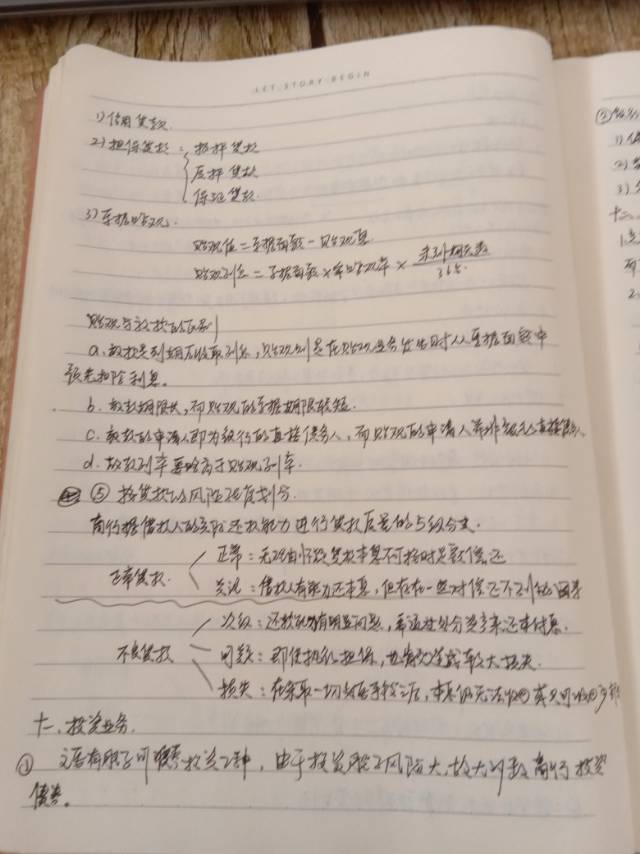 LET·STORY·BEGIN
1)信用贷款.
2)担保贷款: 抵押贷款
质押贷款
保证贷款.
3)票据贴现.
贴现值=票据面额-贴现息
贴现利息=票据面额×年贴现率× 未到期天数/365.
贴现与放款的区别
a.放款是到期后收取利息,贴现则是在贴现业务发生时从票据面额中
预先扣除利息。
b.放款期限长,而贴现的票据期限较短.
c.放款的申请人即为银行的直接债务人,而贴现的申请人并非银行的直接债务人
d.放款利率要略高于贴现利率.
⑤ 按贷款的风险程度划分.
商行据借款人的实际还款能力进行贷款质量的5级分类.
正常贷款. 正常:无理由怀疑贷款本息不可按时足额偿还
关注:借款人有能力还本息,但存在一些对偿还不利的因素
不良贷款 次级:还款能力有明显问题,
可疑:即使执行担保,也会造成较大损失.
损失:在采取一切 手段之后,本息仍无法收回或只可收回少部
十一、投资业务.
① 主要有股票和债券投资2种,由于投资股票风险大,故大多数商行投资
债券。
②
1)
2)
3)
十二、
1.
2.